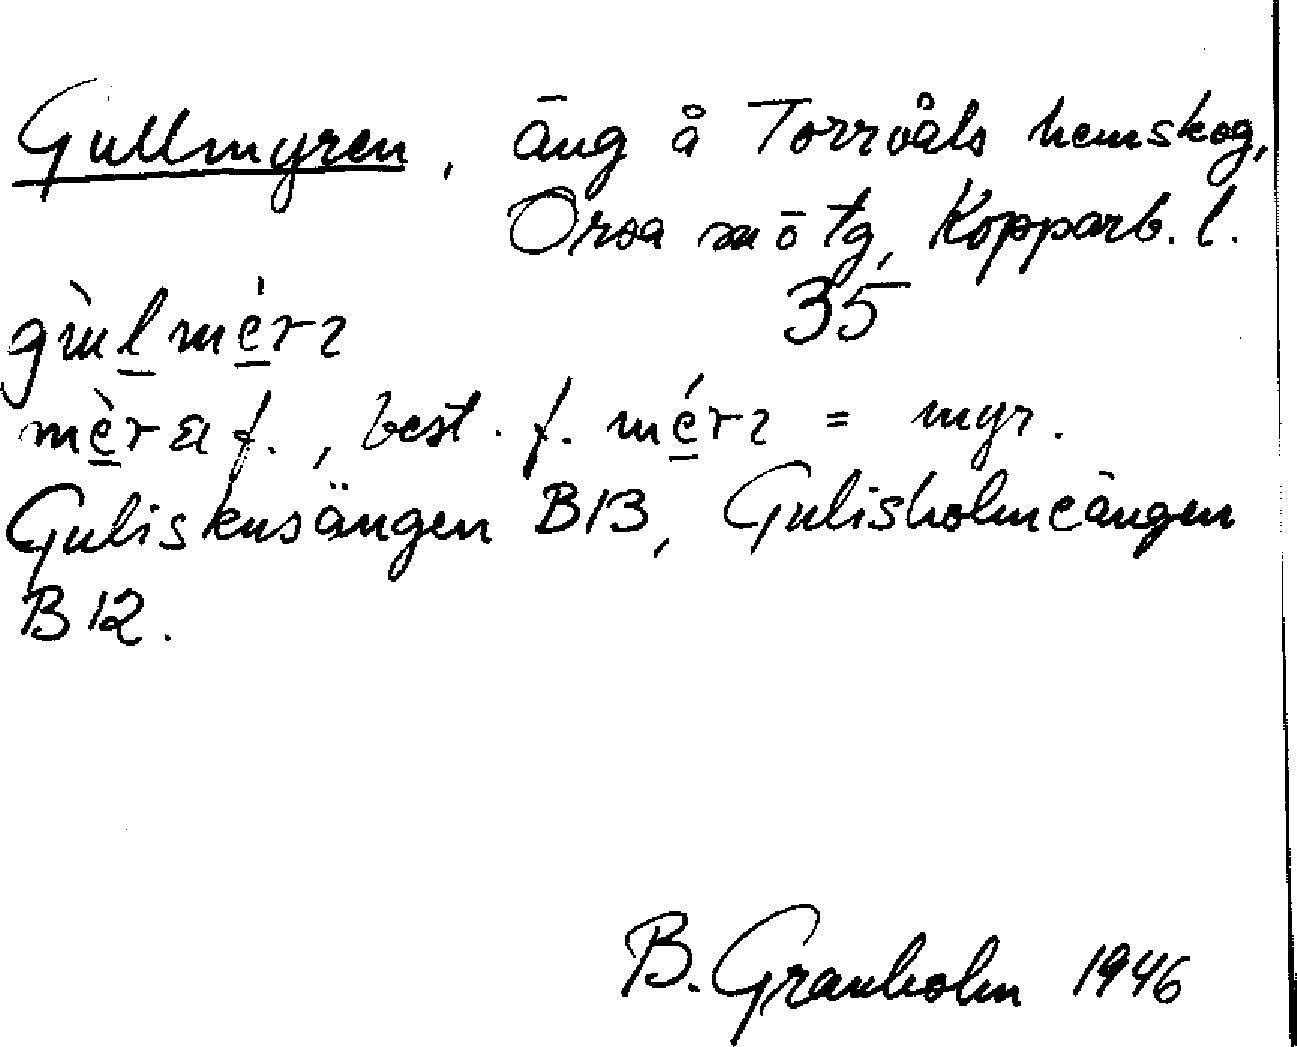 Gullmyren, äng å Torrvåls hemskog,
Orsa sn ö tg, Kopparb. l.
35
gùl mérɿ
mèra f., best. f. mérɿ = myr.
Guliskusängen B13, Gulisholmeängen
B12.
B. Granholm 1946